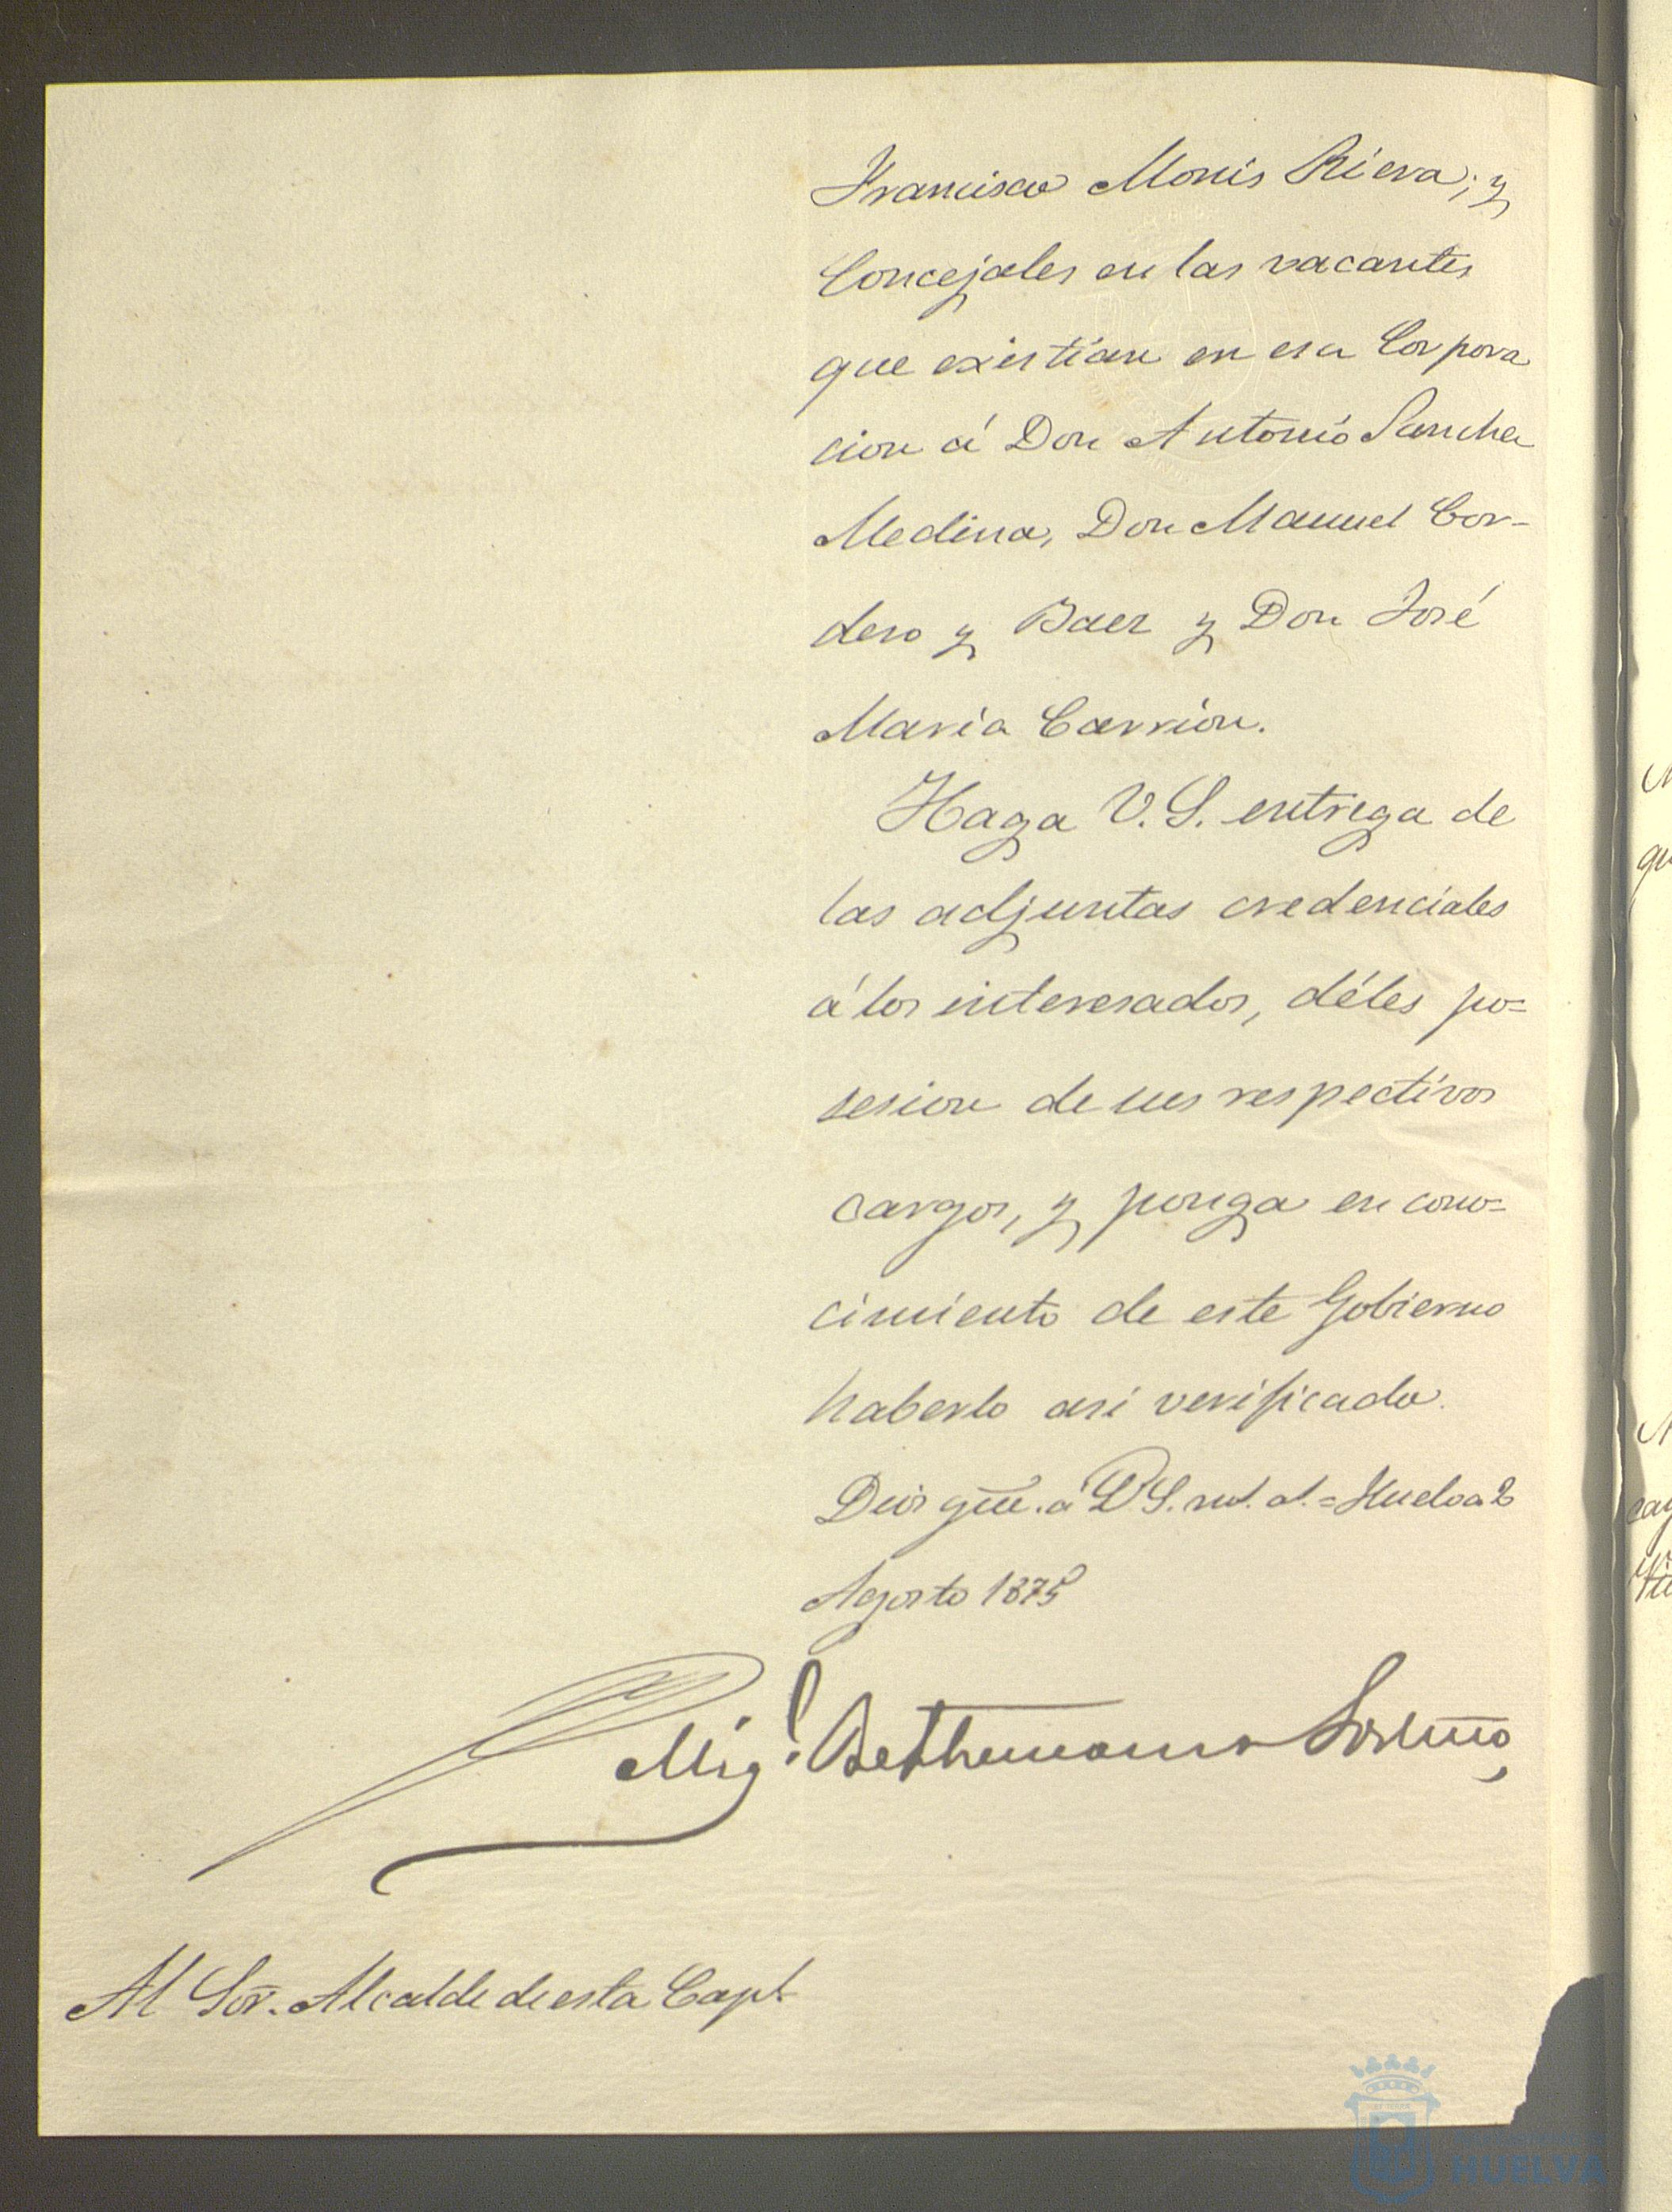 Francisco Monis Riera; y
Concejales en las vacantes
que existian en esa Corpora
cion á Don Antonio Sanchez
Medina, Don Manuel Cor-
dero y Baez y Don José
Maria Carrion.
Haga V. S. entrega de
las adjuntas credenciales
á los interesados, déles po=
sesion de sus respectivos
cargos, y ponga en cono=
cimiento de este Gobierno
haberlo asi verificado.
Dios gūe. á V. S. m.s a.s = Huelva 2
Agosto 1875
Mig.l Bethemann
Al Sor. Alcalde de esta Capl.
HUELVA